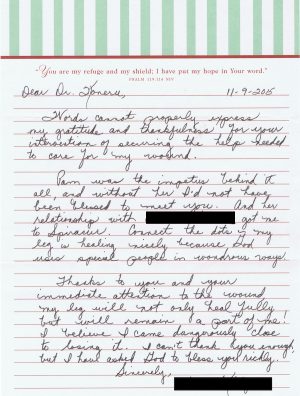 "You are my refuge and my shield; I have put my hope in Your word."
PSALM 119:114 NIV
Dear Dr. Koneru, 11-9-2015
Words cannot properly express
my gratitude and thankfulness for your
intervention of securing the help needed
to care for my wound.
Pam was the impetus behind it
all, and without her I'd not have
been blessed to meet you. And her
relationship with got me
to Spiracur. Connect the dots & my
leg is healing nicely because God
uses special people in wondrous ways.
Thanks to you and your
immediate attention to the wound
my leg will not only heal fully
but will remain a part of me!
I believe I came dangerously close
to losing it. I can't thank you enough,
but I have asked God to bless you richly.
Sincerely,